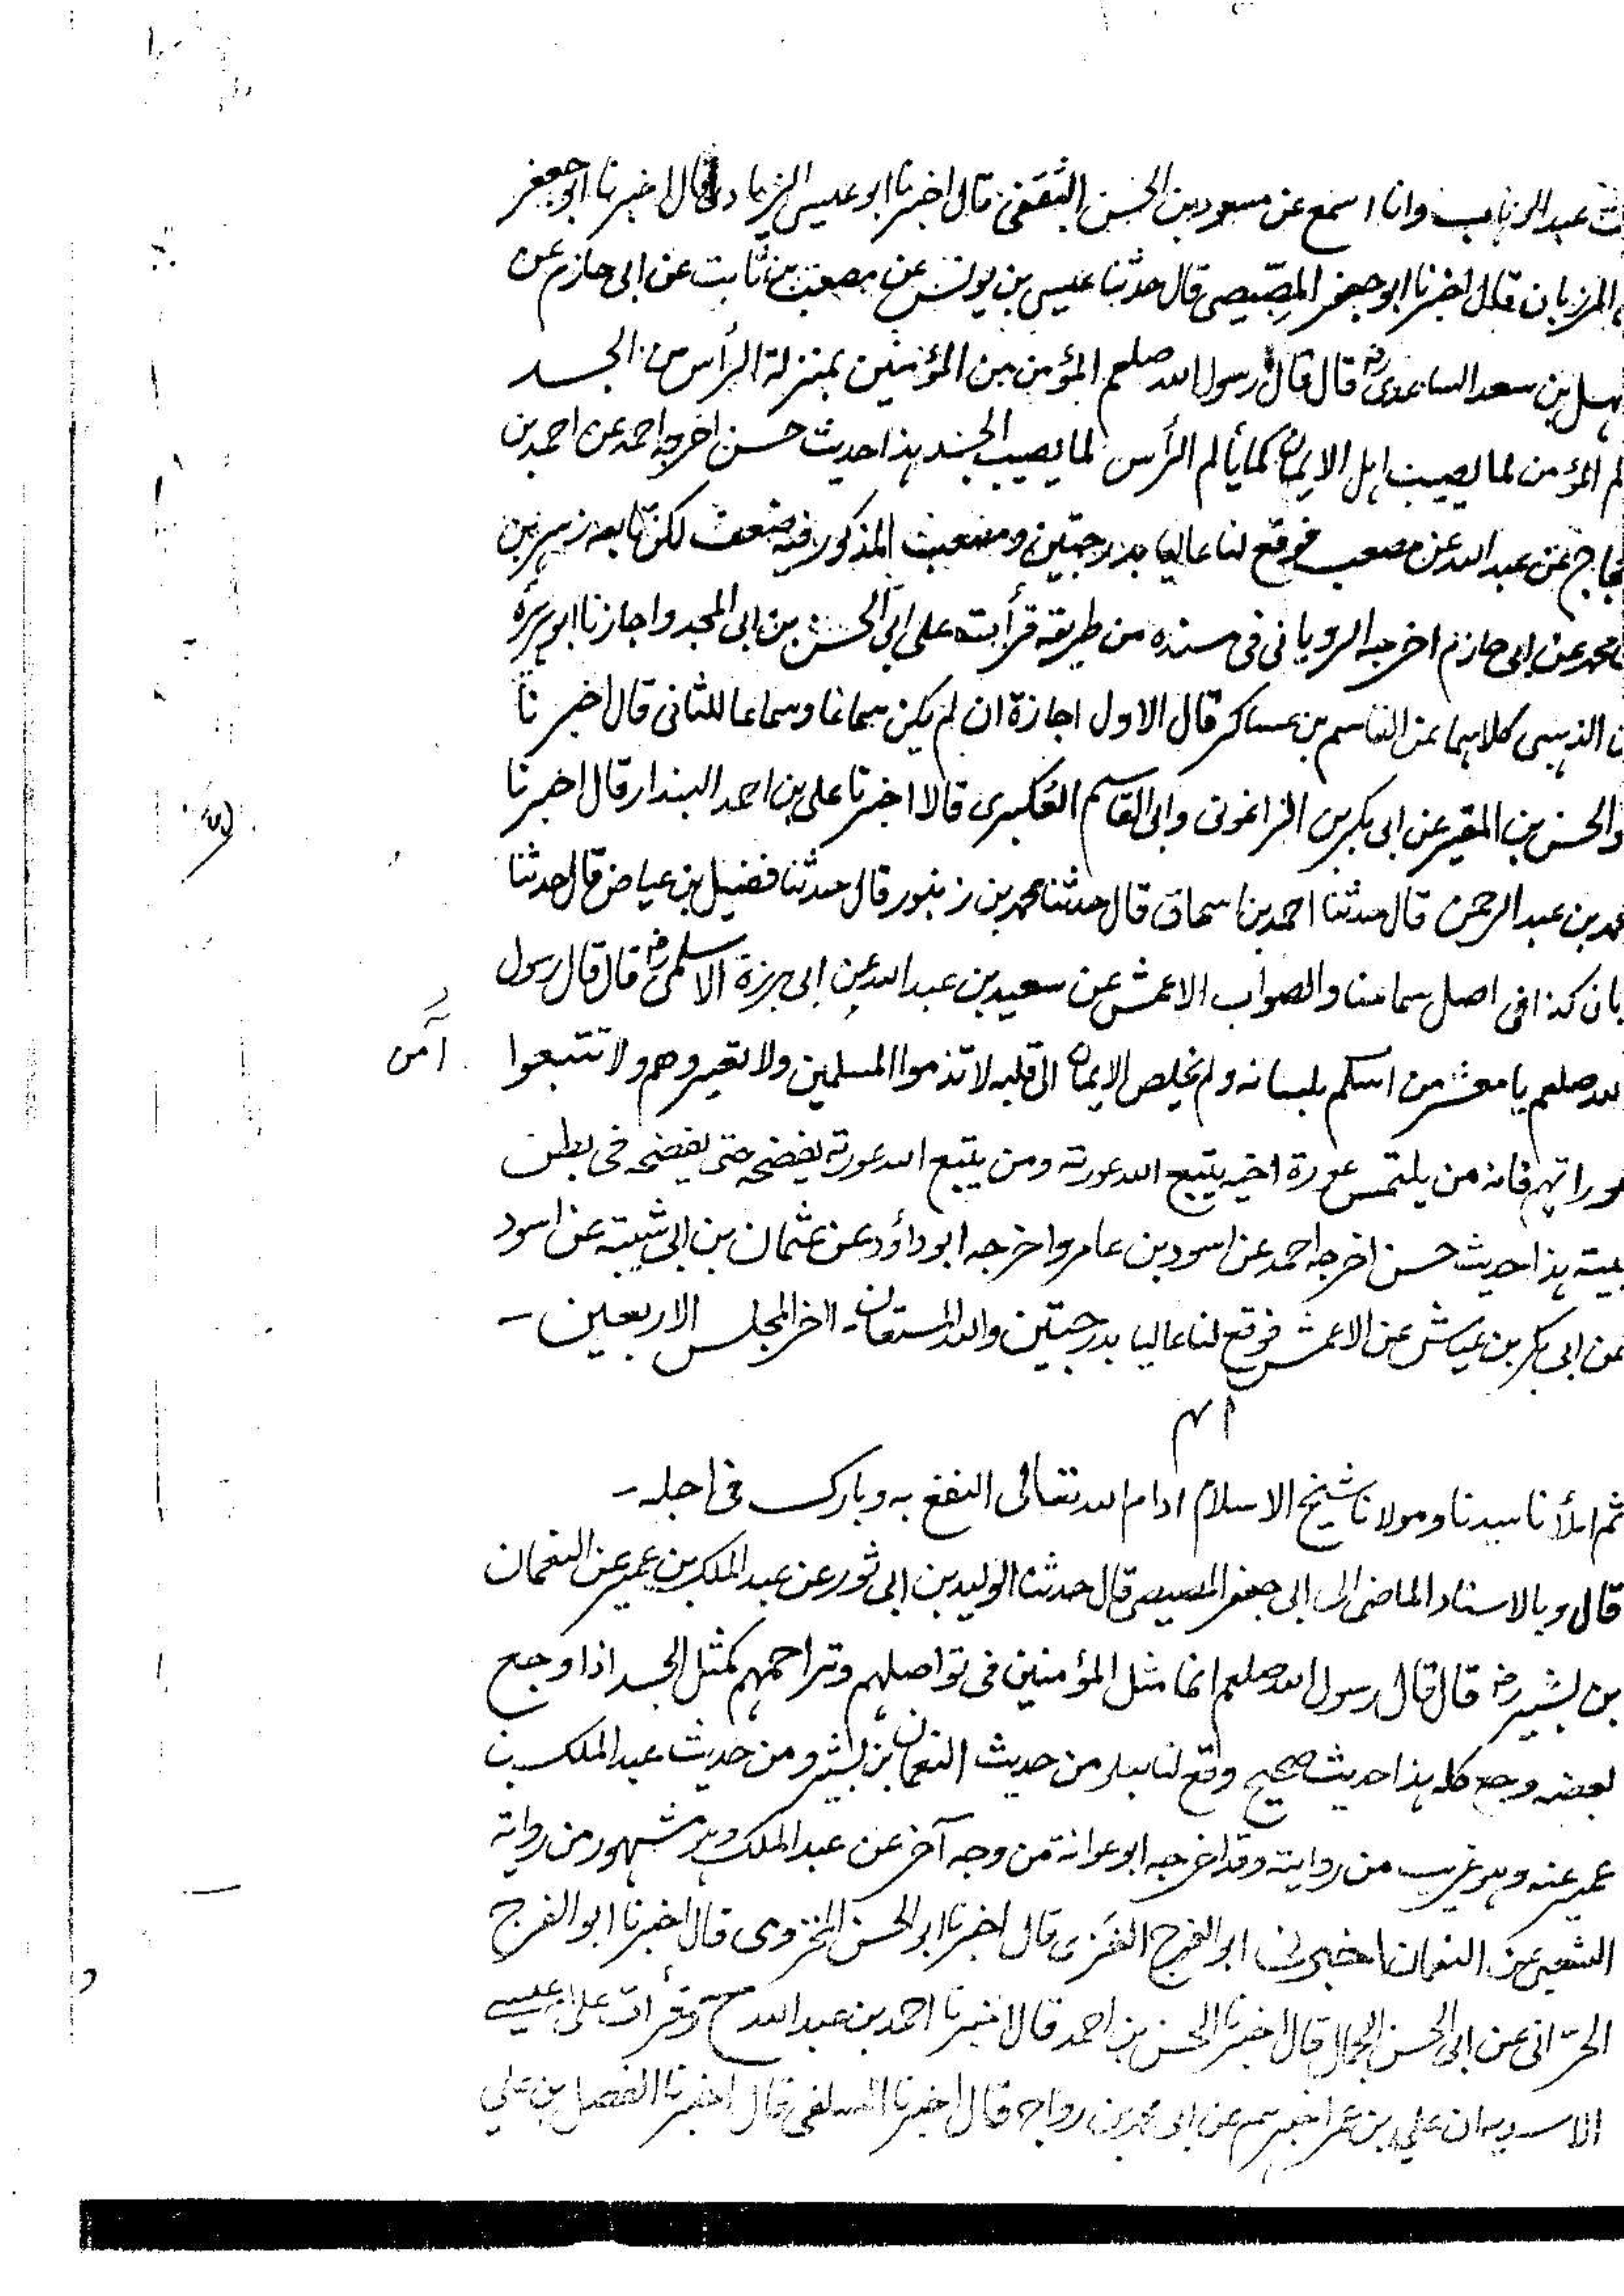 بنت عبد الوهاب وانا اسمع عن مسعود بن الحسن الثقفى قال اخبرنا ابو عيسى الزيادى قال اخبرنا ابو جعفر
المرزبان قال اخبرنا ابو جعفر المصيصى قال حدثنا عيسى بن يونس عن مصعب بن ثابت عن ابى حازم عن
سهل بن سعد الساعدى رض قال قال رسول الله صلعم المؤمن من المؤمنين بمنزلة الرأس من الجسد
لم المؤمن لما يصيب اهل الايمان كما يألم الرأس لما يصيب الجسد هذا حديث حسن اخرجه احمد عن احمد بن
حجاج عن عبد الله عن مصعب فوقع لنا عاليا بدرجتين ومصعب المذكور فيه ضعف لكن تابعه زهير بن
محمد عن ابى حازم اخرجه الرويانى فى مسنده من طريقه قرأت على ابى الحسن بن ابى المجد واجازنا ابو هريرة
بن الذهبى كلاهما عن القاسم بن عساكر قال الاول اجازة ان لم يكن سماعا وسماعا للثانى قال اخبرنا
والحسن بن المقير عن ابى بكر بن الزاغونى وابى القاسم العكبرى قالا اخبرنا على بن احمد البندار قال اخبرنا
محمد بن عبد الرحمن قال حدثنا احمد بن اسحاق قال حدثنا محمد بن زنبور قال حدثنا فضيل بن عياض قال حدثنا
بان كذا فى اصل سماعنا والصواب الاعمش عن سعيد بن عبد الله عن ابى برزة الاسلمى رض قال قال رسول
الله صلعم يا معشر من اسلم بلسانه ولم يخلص الايمان الى قلبه لا تذموا المسلمين ولا تعيروهم ولا تتبعوا
آمن
عوراتهم فانه من يلتمس عورة اخيه يتبع الله عورته ومن يتبع الله عورته يفضحه حتى يفضحه فى بطن
بيته هذا حديث حسن اخرجه احمد عن اسود بن عامر واخرجه ابو داؤد عن عثمان بن ابى شيبة عن اسود
عن ابى بكر بن عياش عن الاعمش فوقع لنا عاليا بدرجتين والله المستعان۔ اخر المجلس الاربعين۔
۴۱
ثم املأنا سيدنا ومولانا شيخ الاسلام ادام الله تعالى النفع به وبارك فى اجله۔
قال وبالاسناد الماضى الى ابى جعفر المصيصى قال حدثنا الوليد بن ابى ثور عن عبد الملك بن عمير عن النعمان
بن بشير رض قال قال رسول الله صلعم انما مثل المؤمنين فى تواصلهم وتراحمهم كمثل الجسد اذا وجع
بعضه وجع كله هذا حديث صحيح وقع لنا من حديث النعمان بن بشير ومن حديث عبد الملك بن
عمير عنه وهو غريب من روايته وقد اخرجه ابو عوانة من وجه آخر عن عبد الملك وهو مشهور من رواية
الشعبى عن النعمان اخبرنى ابو الفرج الغزى قال اخبرنا ابو الحسن المخزومى قال اخبرنا ابو الفرج
الحرانى عن ابى الحسن الجمال قال اخبرنا الحسن بن احمد قال اخبرنا احمد بن عبد الله ح وقرأت على عيسى
ان على بن عمر اخبرهم عن ابى محمد بن رواج قال اخبرنا السلفى قال اخبرنا الفضل بن على